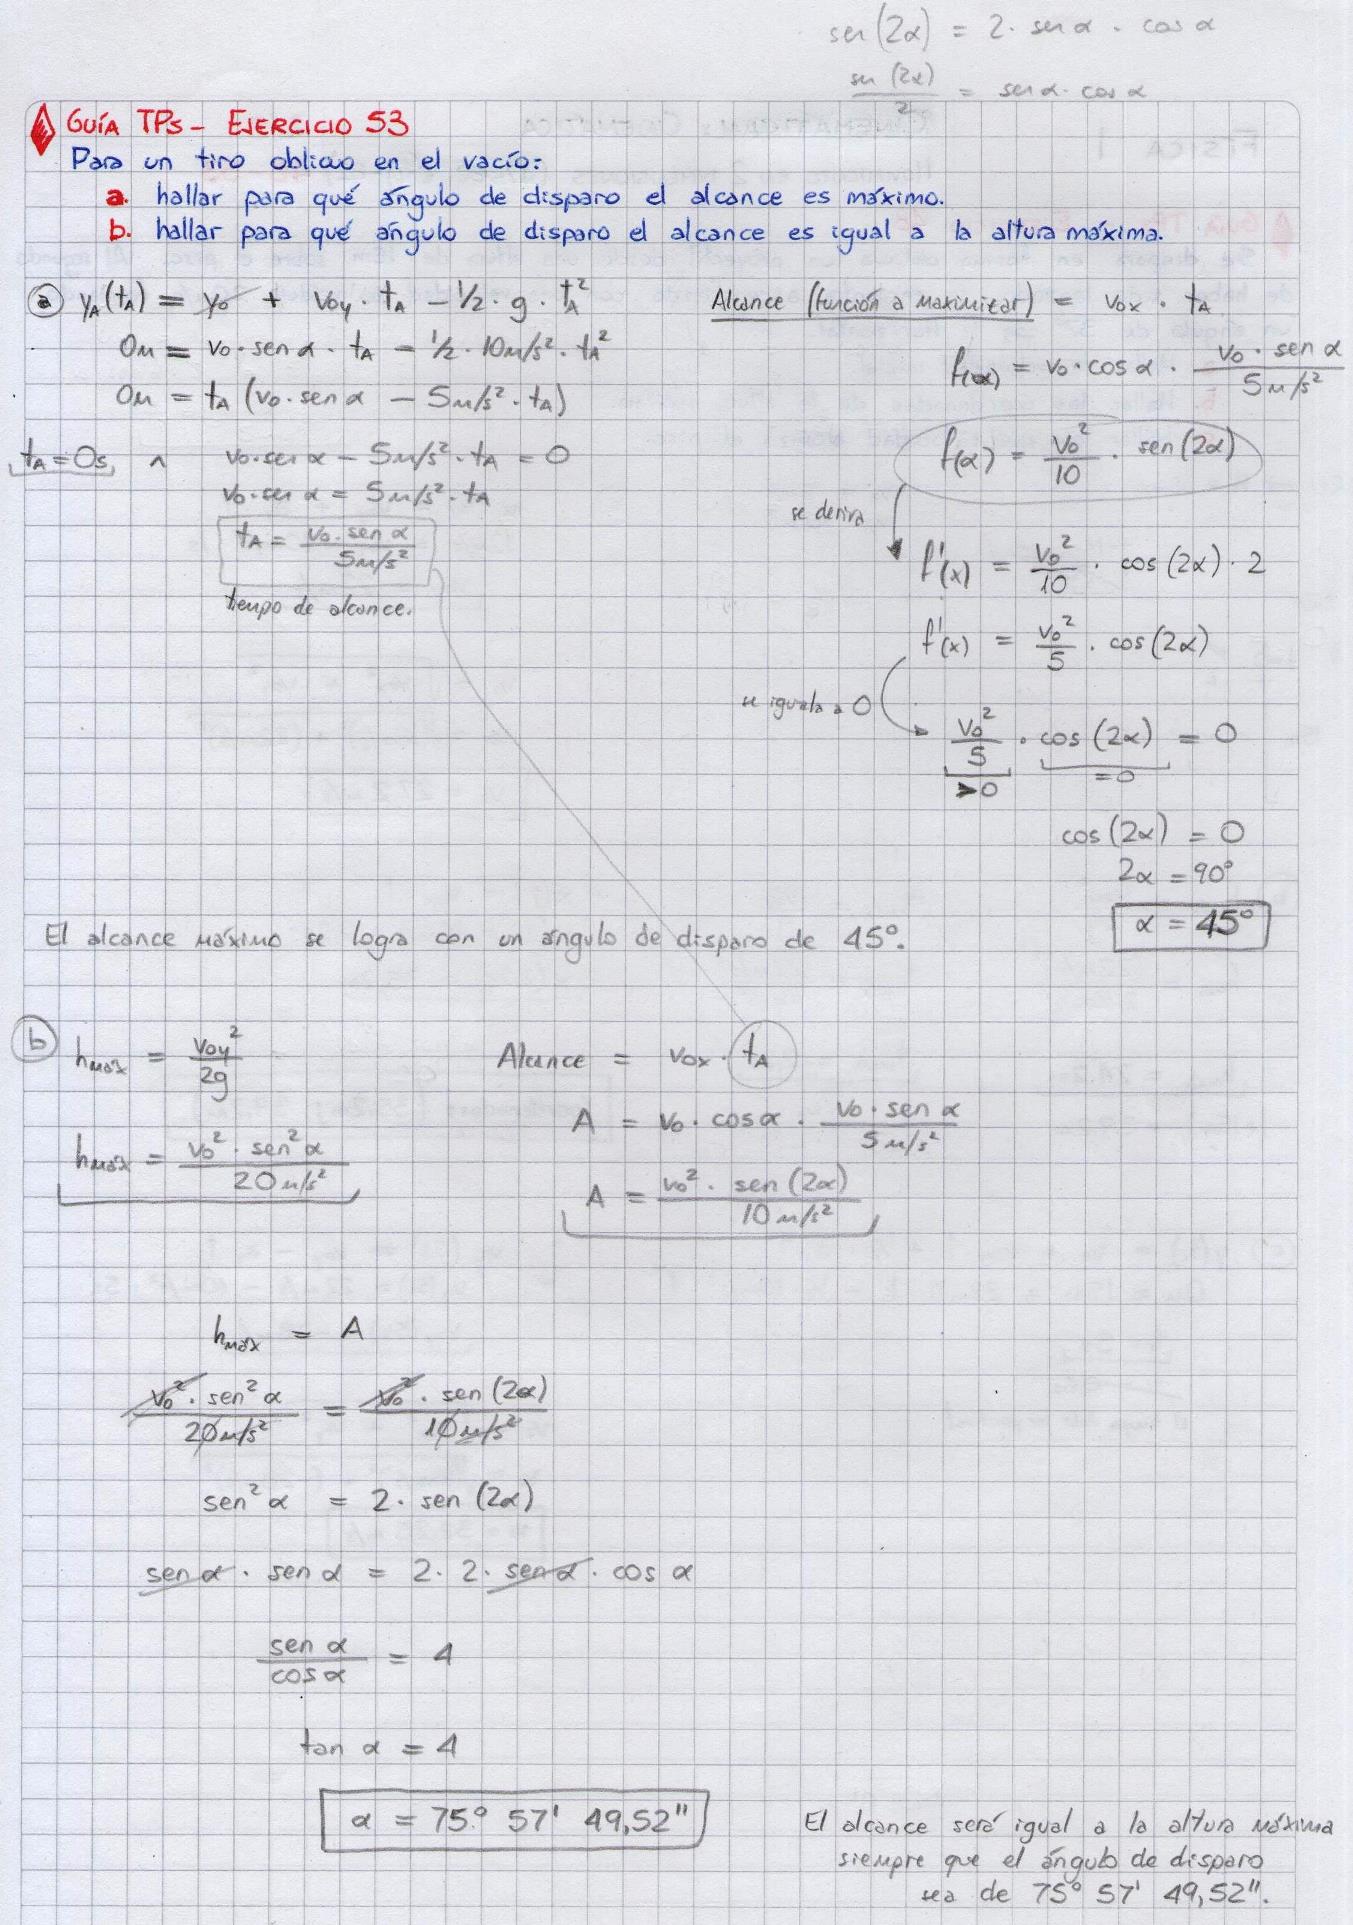 sen (2α) = 2 · sen α · cos α
sen (2α) / 2 = sen α · cos α
GUÍA TPs - EJERCICIO 53
Para un tiro oblicuo en el vacío:
a. hallar para qué ángulo de disparo el alcance es máximo.
b. hallar para qué ángulo de disparo el alcance es igual a la altura máxima.
a) yA(tA) = y0 + v0y · tA - 1/2 · g · tA²
0m = v0 · sen α · tA - 1/2 · 10m/s² · tA²
0m = tA (v0 · sen α - 5m/s² · tA)
tA = 0s ∧ v0 · sen α - 5m/s² · tA = 0
v0 · sen α = 5m/s² · tA
tA = v0 · sen α / 5m/s²
tiempo de alcance.
Alcance (función a maximizar) = v0x · tA
f(α) = v0 · cos α · v0 · sen α / 5m/s²
f(α) = v0² / 10 · sen (2α)
se deriva
f'(x) = v0² / 10 · cos (2α) · 2
f'(x) = v0² / 5 · cos (2α)
se iguala a 0
v0² / 5 · cos (2α) = 0
>0 =0
cos (2α) = 0
2α = 90°
α = 45°
El alcance máximo se logra con un ángulo de disparo de 45°.
b) hmáx = v0y² / 2g
hmáx = v0² · sen² α / 20m/s²
Alcance = v0x · tA
A = v0 · cos α · v0 · sen α / 5m/s²
A = v0² · sen (2α) / 10m/s²
hmáx = A
v0² · sen² α / 20m/s² = v0² · sen (2α) / 10m/s²
sen² α = 2 · sen (2α)
sen α · sen α = 2 · 2 · sen α · cos α
sen α / cos α = 4
tan α = 4
α = 75° 57' 49,52"
El alcance será igual a la altura máxima
siempre que el ángulo de disparo
sea de 75° 57' 49,52".